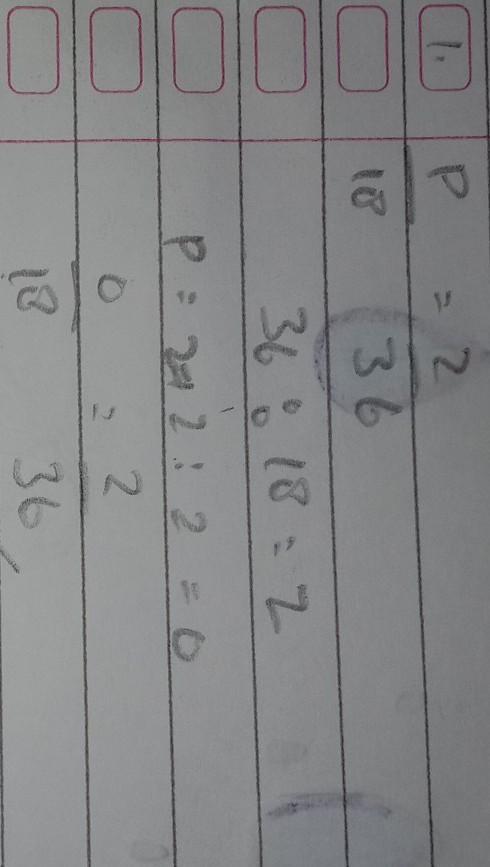 1. P/18 = 2/36
36 : 18 = 2
P = 2 : 2 = 0
0/18 = 2/36